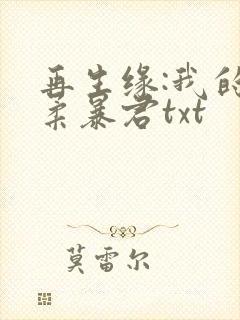 再生缘:我的
柔暴君txt
莫雷尔